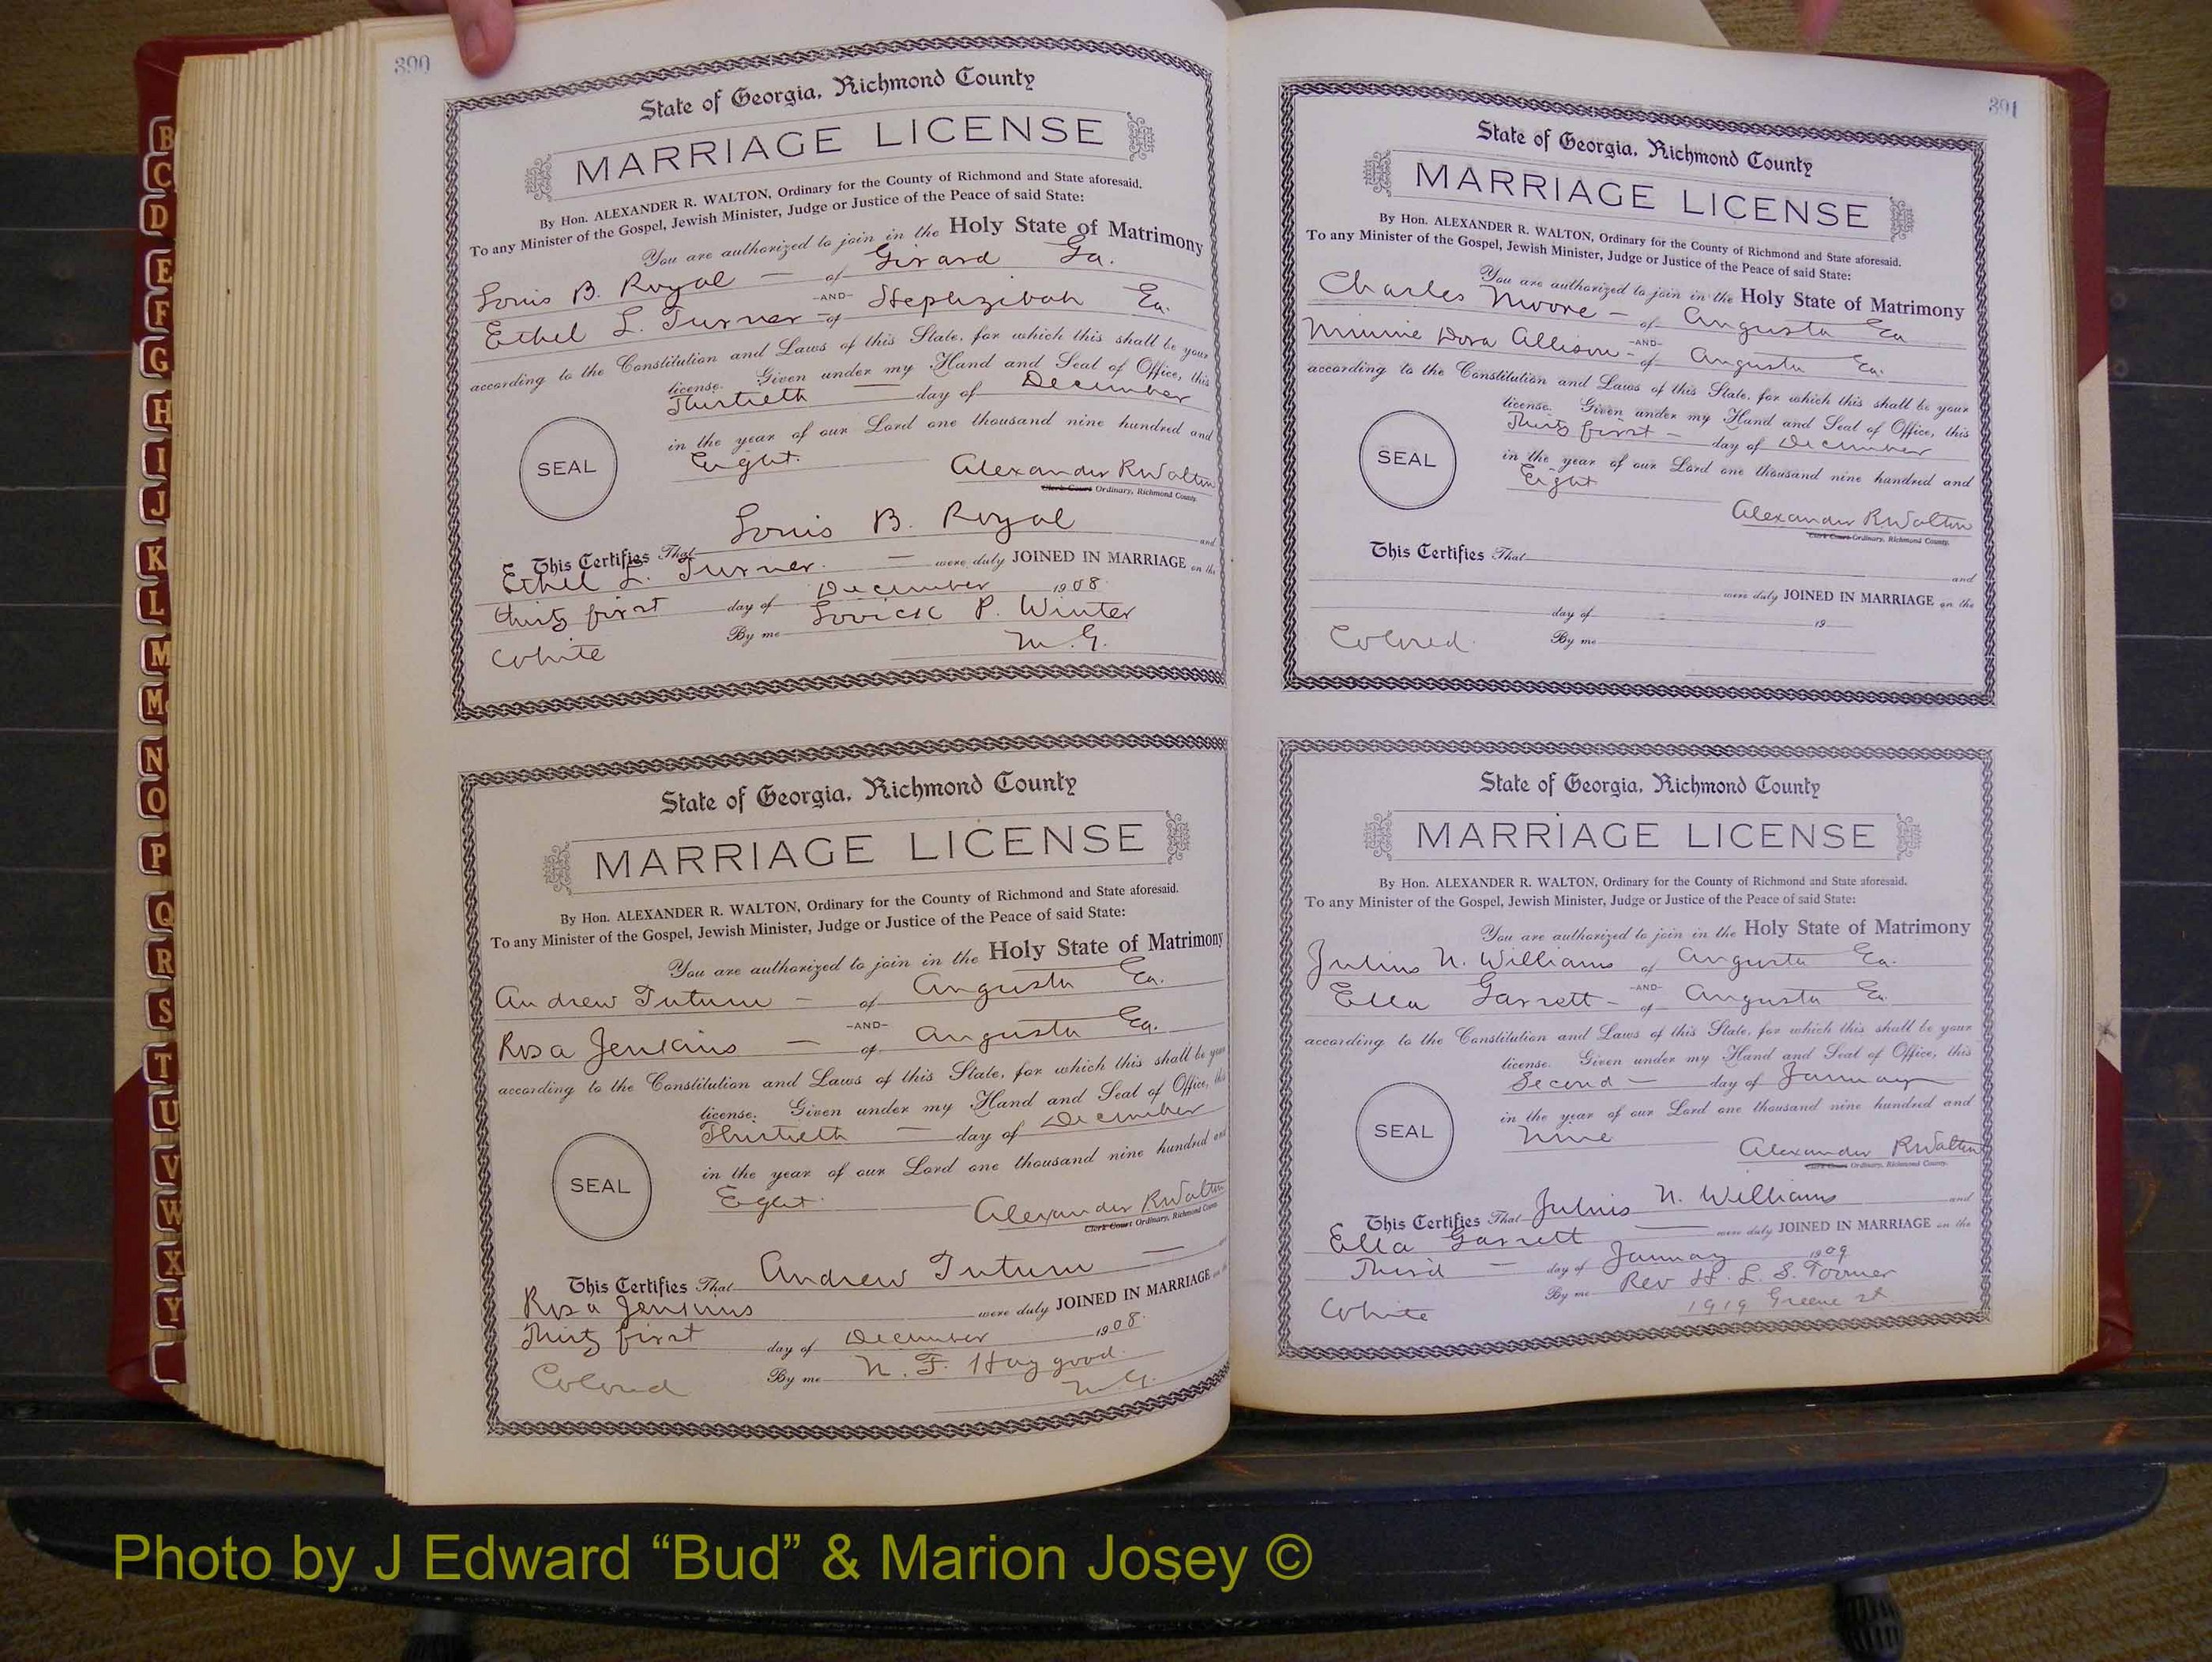 390
State of Georgia, Richmond County
MARRIAGE LICENSE
By Hon. ALEXANDER R. WALTON, Ordinary for the County of Richmond and State aforesaid.
To any Minister of the Gospel, Jewish Minister, Judge or Justice of the Peace of said State:
You are authorized to join in the Holy State of Matrimony
Louis B. Royal — of Girard Ga.
-AND-
Ethel L. Turner - of Hephzibah Ga.
according to the Constitution and Laws of this State, for which this shall be your
license. Given under my Hand and Seal of Office, this
Thirtieth — day of December
in the year of our Lord one thousand nine hundred and
Eight.
SEAL
Alexander R Walton
Clerk Court Ordinary, Richmond County.
This Certifies That Louis B. Royal and
Ethel L. Turner. — were duly JOINED IN MARRIAGE on the
thirty first day of December 1908
By me Lovick P. Winter
White M. G.
State of Georgia, Richmond County
MARRIAGE LICENSE
By Hon. ALEXANDER R. WALTON, Ordinary for the County of Richmond and State aforesaid.
To any Minister of the Gospel, Jewish Minister, Judge or Justice of the Peace of said State:
You are authorized to join in the Holy State of Matrimony
Andrew Tutum — of Augusta Ga.
-AND-
Rosa Jenkins — of Augusta Ga.
according to the Constitution and Laws of this State, for which this shall be your
license. Given under my Hand and Seal of Office, this
Thirtieth — day of December
in the year of our Lord one thousand nine hundred and
Eght
SEAL
Alexander R Walton
Clerk Court Ordinary, Richmond County
This Certifies That Andrew Tutum —
Rosa Jenkins were duly JOINED IN MARRIAGE on the
Thirty first day of December 1908
By me N. F. Haygood.
Colored M. G.
391
State of Georgia, Richmond County
MARRIAGE LICENSE
By Hon. ALEXANDER R. WALTON, Ordinary for the County of Richmond and State aforesaid.
To any Minister of the Gospel, Jewish Minister, Judge or Justice of the Peace of said State:
You are authorized to join in the Holy State of Matrimony
Charles Moore — of Augusta Ga
-AND-
Minnie Dora Allison - of Augusta Ga.
according to the Constitution and Laws of this State, for which this shall be your
license. Given under my Hand and Seal of Office, this
Thirty first — day of December
in the year of our Lord one thousand nine hundred and
Eight
SEAL
Alexander R Walton
Clerk Court Ordinary, Richmond County.
This Certifies That and
were duly JOINED IN MARRIAGE on the
day of 19
Colored. By me
State of Georgia, Richmond County
MARRIAGE LICENSE
By Hon. ALEXANDER R. WALTON, Ordinary for the County of Richmond and State aforesaid.
To any Minister of the Gospel, Jewish Minister, Judge or Justice of the Peace of said State:
You are authorized to join in the Holy State of Matrimony
Julius N. Williams of Augusta Ga.
-AND-
Ella Garrett - of Augusta Ga.
according to the Constitution and Laws of this State, for which this shall be your
license. Given under my Hand and Seal of Office, this
Second — day of January
in the year of our Lord one thousand nine hundred and
Nine
SEAL
Alexander R Walton
Clerk Court Ordinary, Richmond County.
This Certifies That Julius N. Williams and
Ella Garrett — were duly JOINED IN MARRIAGE on the
Third — day of January 1909
By me Rev H. L. S. Toomer
White 1919 Greene st
B
C
D
E
F
G
H
I
J
K
L
M
Mc
N
O
P
Q
R
S
T
U
V
W
X
Y
Photo by J Edward “Bud” & Marion Josey ©